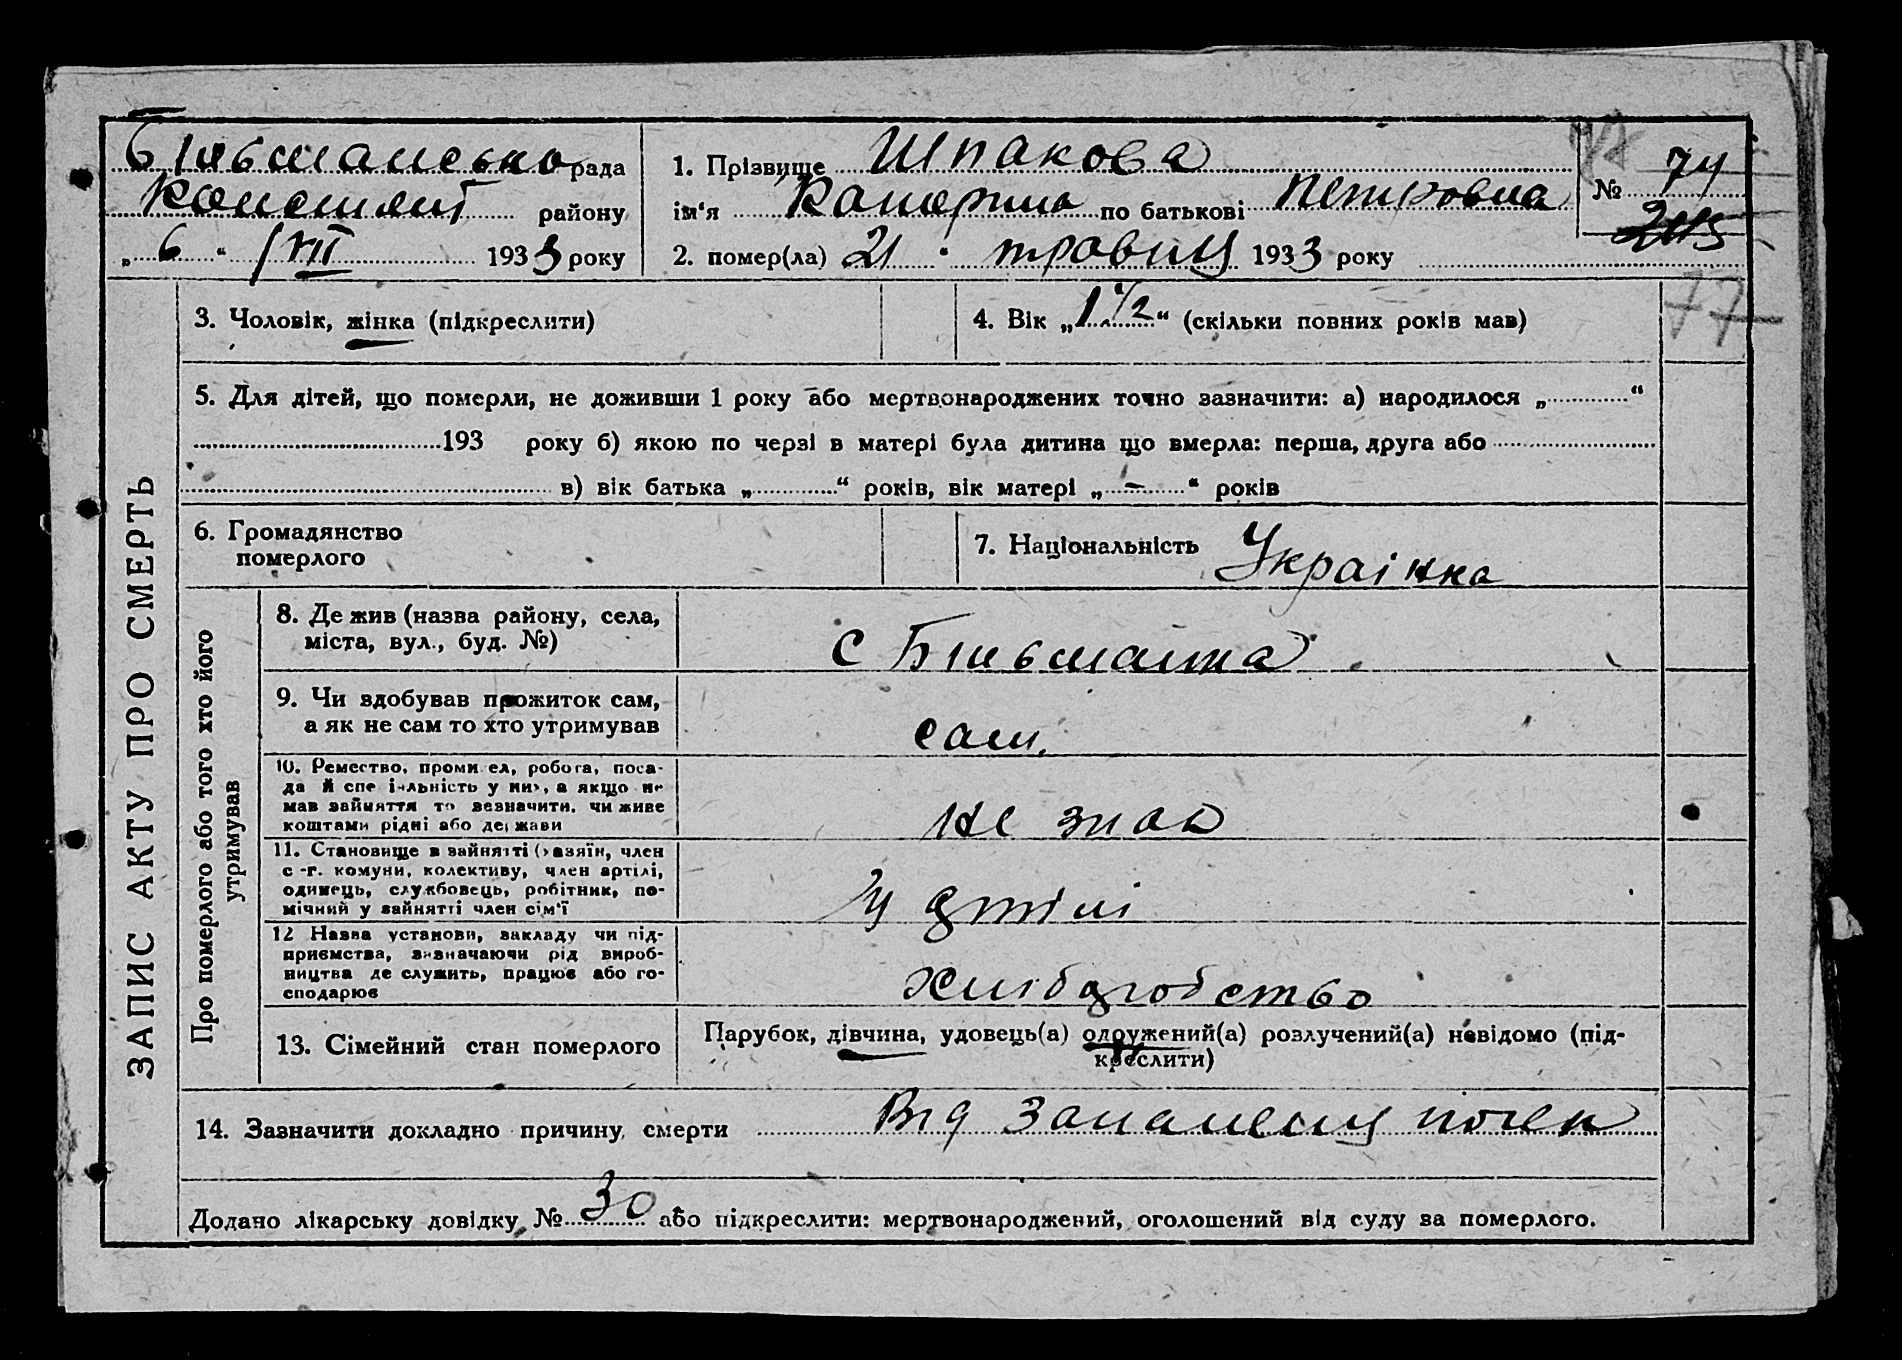 Більманська рада
району
„ 6 “ VII 1933 року
1. Прізвище Шпакова
ім'я Катерина по батькові Петровна
2. помер(ла) 21 " травня 1933 року
№ 74
77
ЗАПИС АКТУ ПРО СМЕРТЬ
3. Чоловік, жінка (підкреслити)
4. Вік „1 1/2“ (скільки повних років мав)
5. Для дітей, що померли, не доживши 1 року або мертвонароджених точно зазначити: а) народилося „ “
193 року б) якою по черзі в матері була дитина що вмерла: перша, друга або
в) вік батька „ “ років, вік матері „ - “ років
6. Громадянство
померлого
7. Національність Українка
Про померлого або того хто його
утримував
8. Де жив (назва району, села,
міста, вул., буд. №)
с Більманка
9. Чи здобував прожиток сам,
а як не сам то хто утримував
сам.
10. Ремество, промисел, робота, поса-
да й спеціяльність у них, а якщо не
мав зайняття то зазначити, чи живе
коштами рідні або держави
не знаю
11. Становище в зайнятті (хазяїн, член
с-г. комуни, колективу, член артілі,
одинець, службовець, робітник, по-
мічний у зайнятті член сім'ї
У артілі
12 Назва установи, закладу чи під-
приємства, визначаючи рід вироб-
ництва де служить, працює або го-
сподарює
Хліборобство
13. Сімейний стан померлого
Парубок, дівчина, удовець(а) одружений(а) розлучений(а) невідомо (під-
креслити)
14. Зазначити докладно причину смерти Від запалення почек
Додано лікарську довідку № 30 або підкреслити: мертвонароджений, оголошений від суду за померлого.